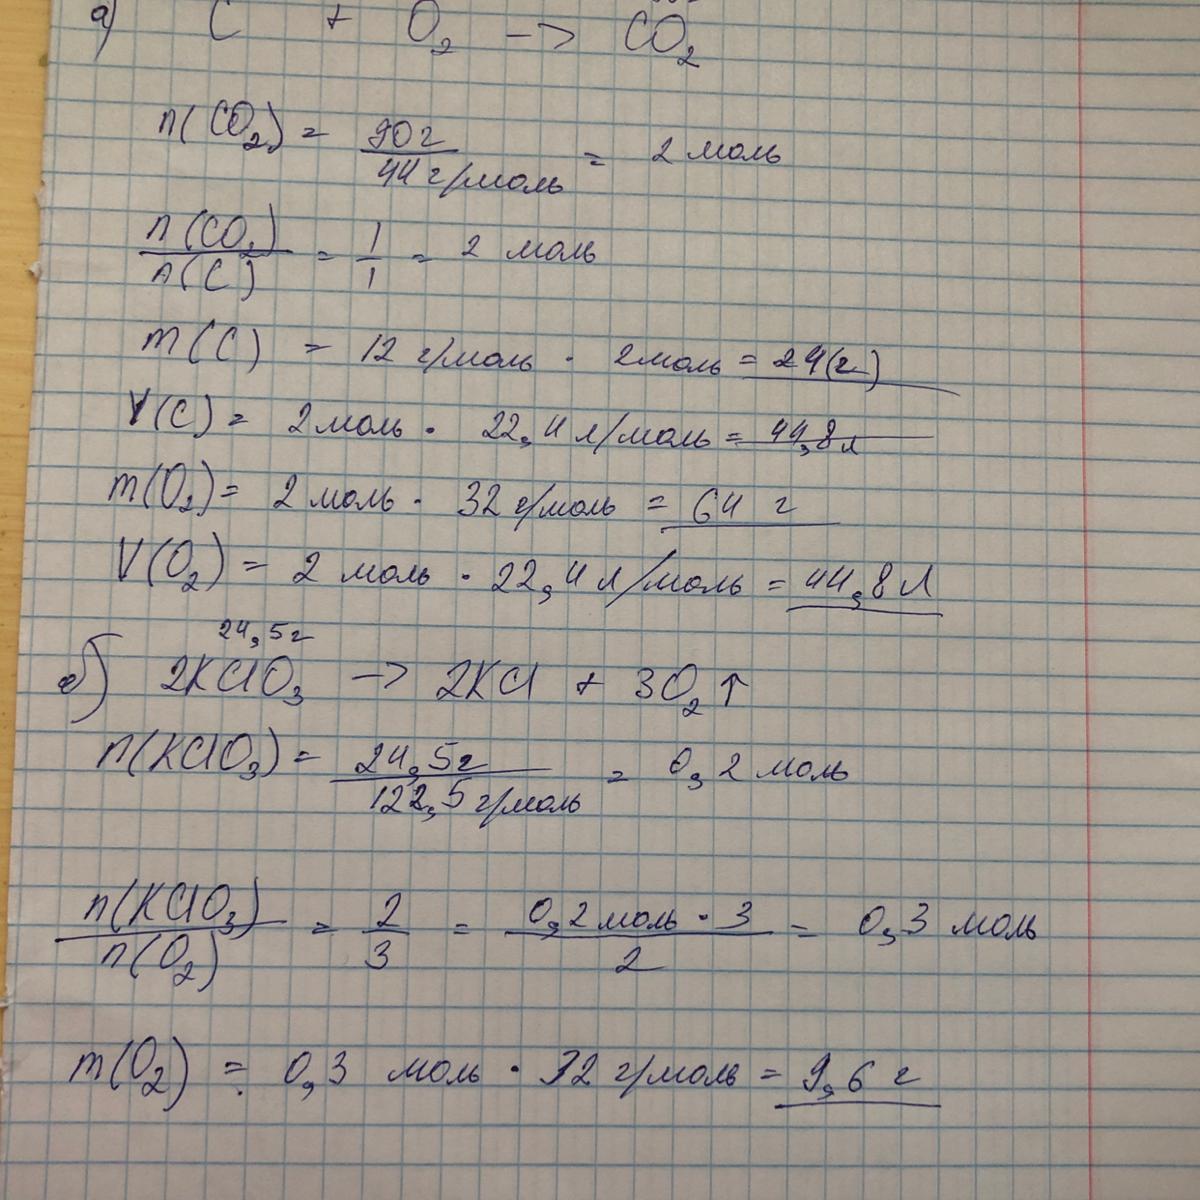 а) C + O₂ -> CO₂
n(CO₂) = 90 г / 44 г/моль = 2 моль
n(CO₂) / n(C) = 1/1 = 2 моль
m(C) = 12 г/моль · 2 моль = 24(г)
V(C) = 2 моль · 22,4 л/моль = 44,8 л
m(O₂) = 2 моль · 32 г/моль = 64 г
V(O₂) = 2 моль · 22,4 л/моль = 44,8 л
24,5 г
б) 2KClO₃ -> 2KCl + 3O₂ ↑
n(KClO₃) = 24,5 г / 122,5 г/моль = 0,2 моль
n(KClO₃) / n(O₂) = 2/3 = 0,2 моль · 3 / 2 = 0,3 моль
m(O₂) = 0,3 моль · 32 г/моль = 9,6 г